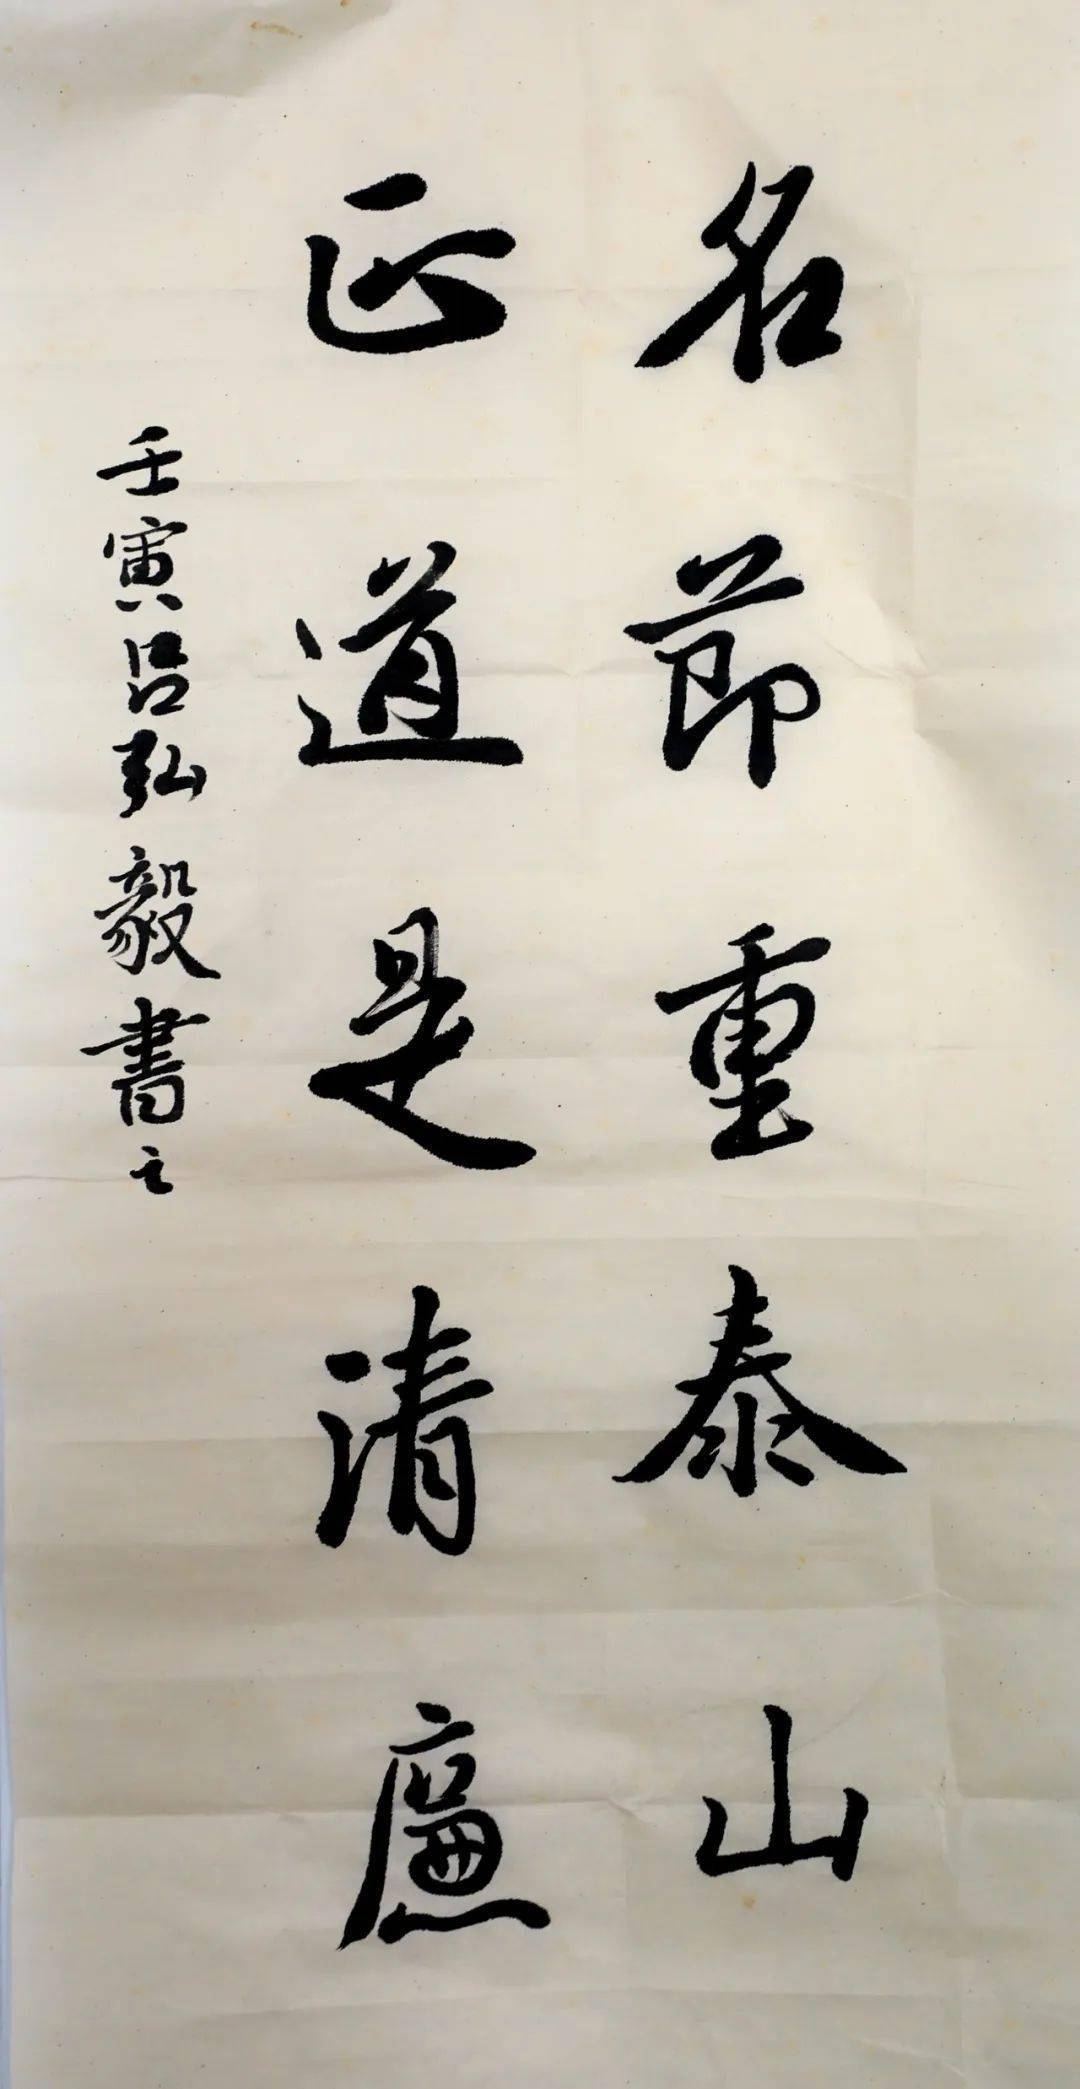 名节重泰山
正道是清廉
壬寅吕弘毅書之